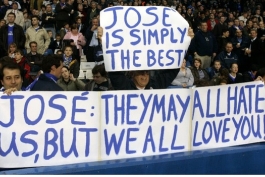 JOSE
IS SIMPLY
THE BEST
JOSÉ: THEY MAY ALL HATE
US, BUT WE ALL LOVE YOU!